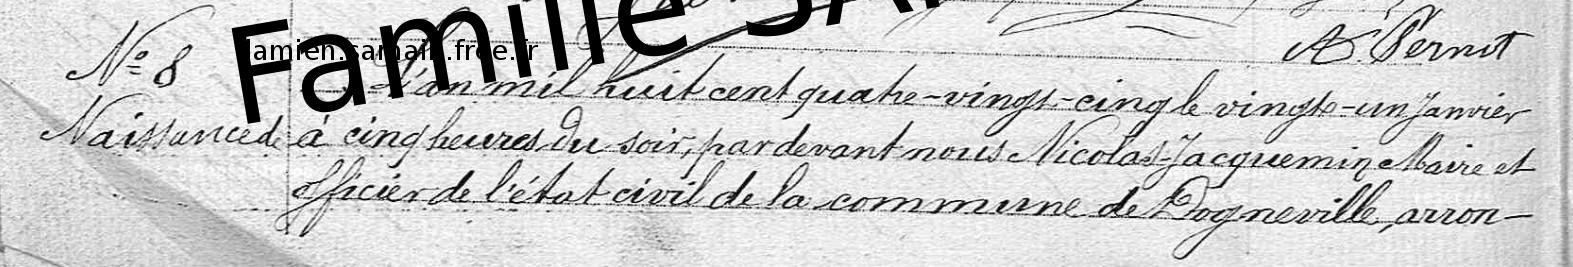 A Pernot
Famille SA
damien.samain.free.fr
Nº 8
L'an mil huit cent quatre-vingt-cinq le vingt-un Janvier
Naissance de
à cinq heures du soir, par devant nous Nicolas-Jacquemin Maire et
officier de l'état civil de la commune de Dogneville, arron-